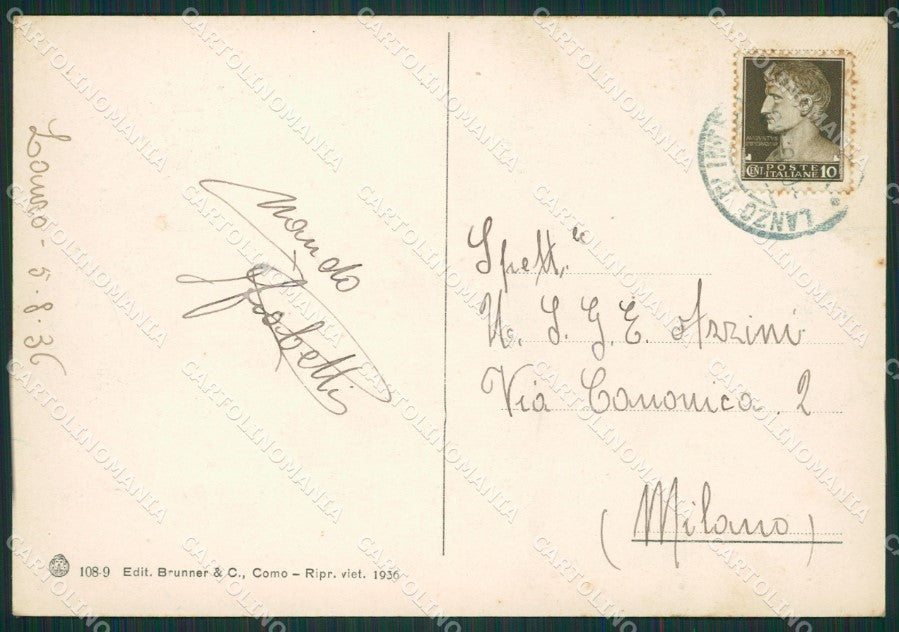 Lanzo - 5 - 8 - 36
Nando
108-9 Edit. Brunner & C., Como – Ripr. viet. 1936
POSTE
CENT. ITALIANE 10
LANZO
Spett.le
U. S. G. E. Azzini
Via Canonica. 2
(Milano)
CARTOLINOMANIA